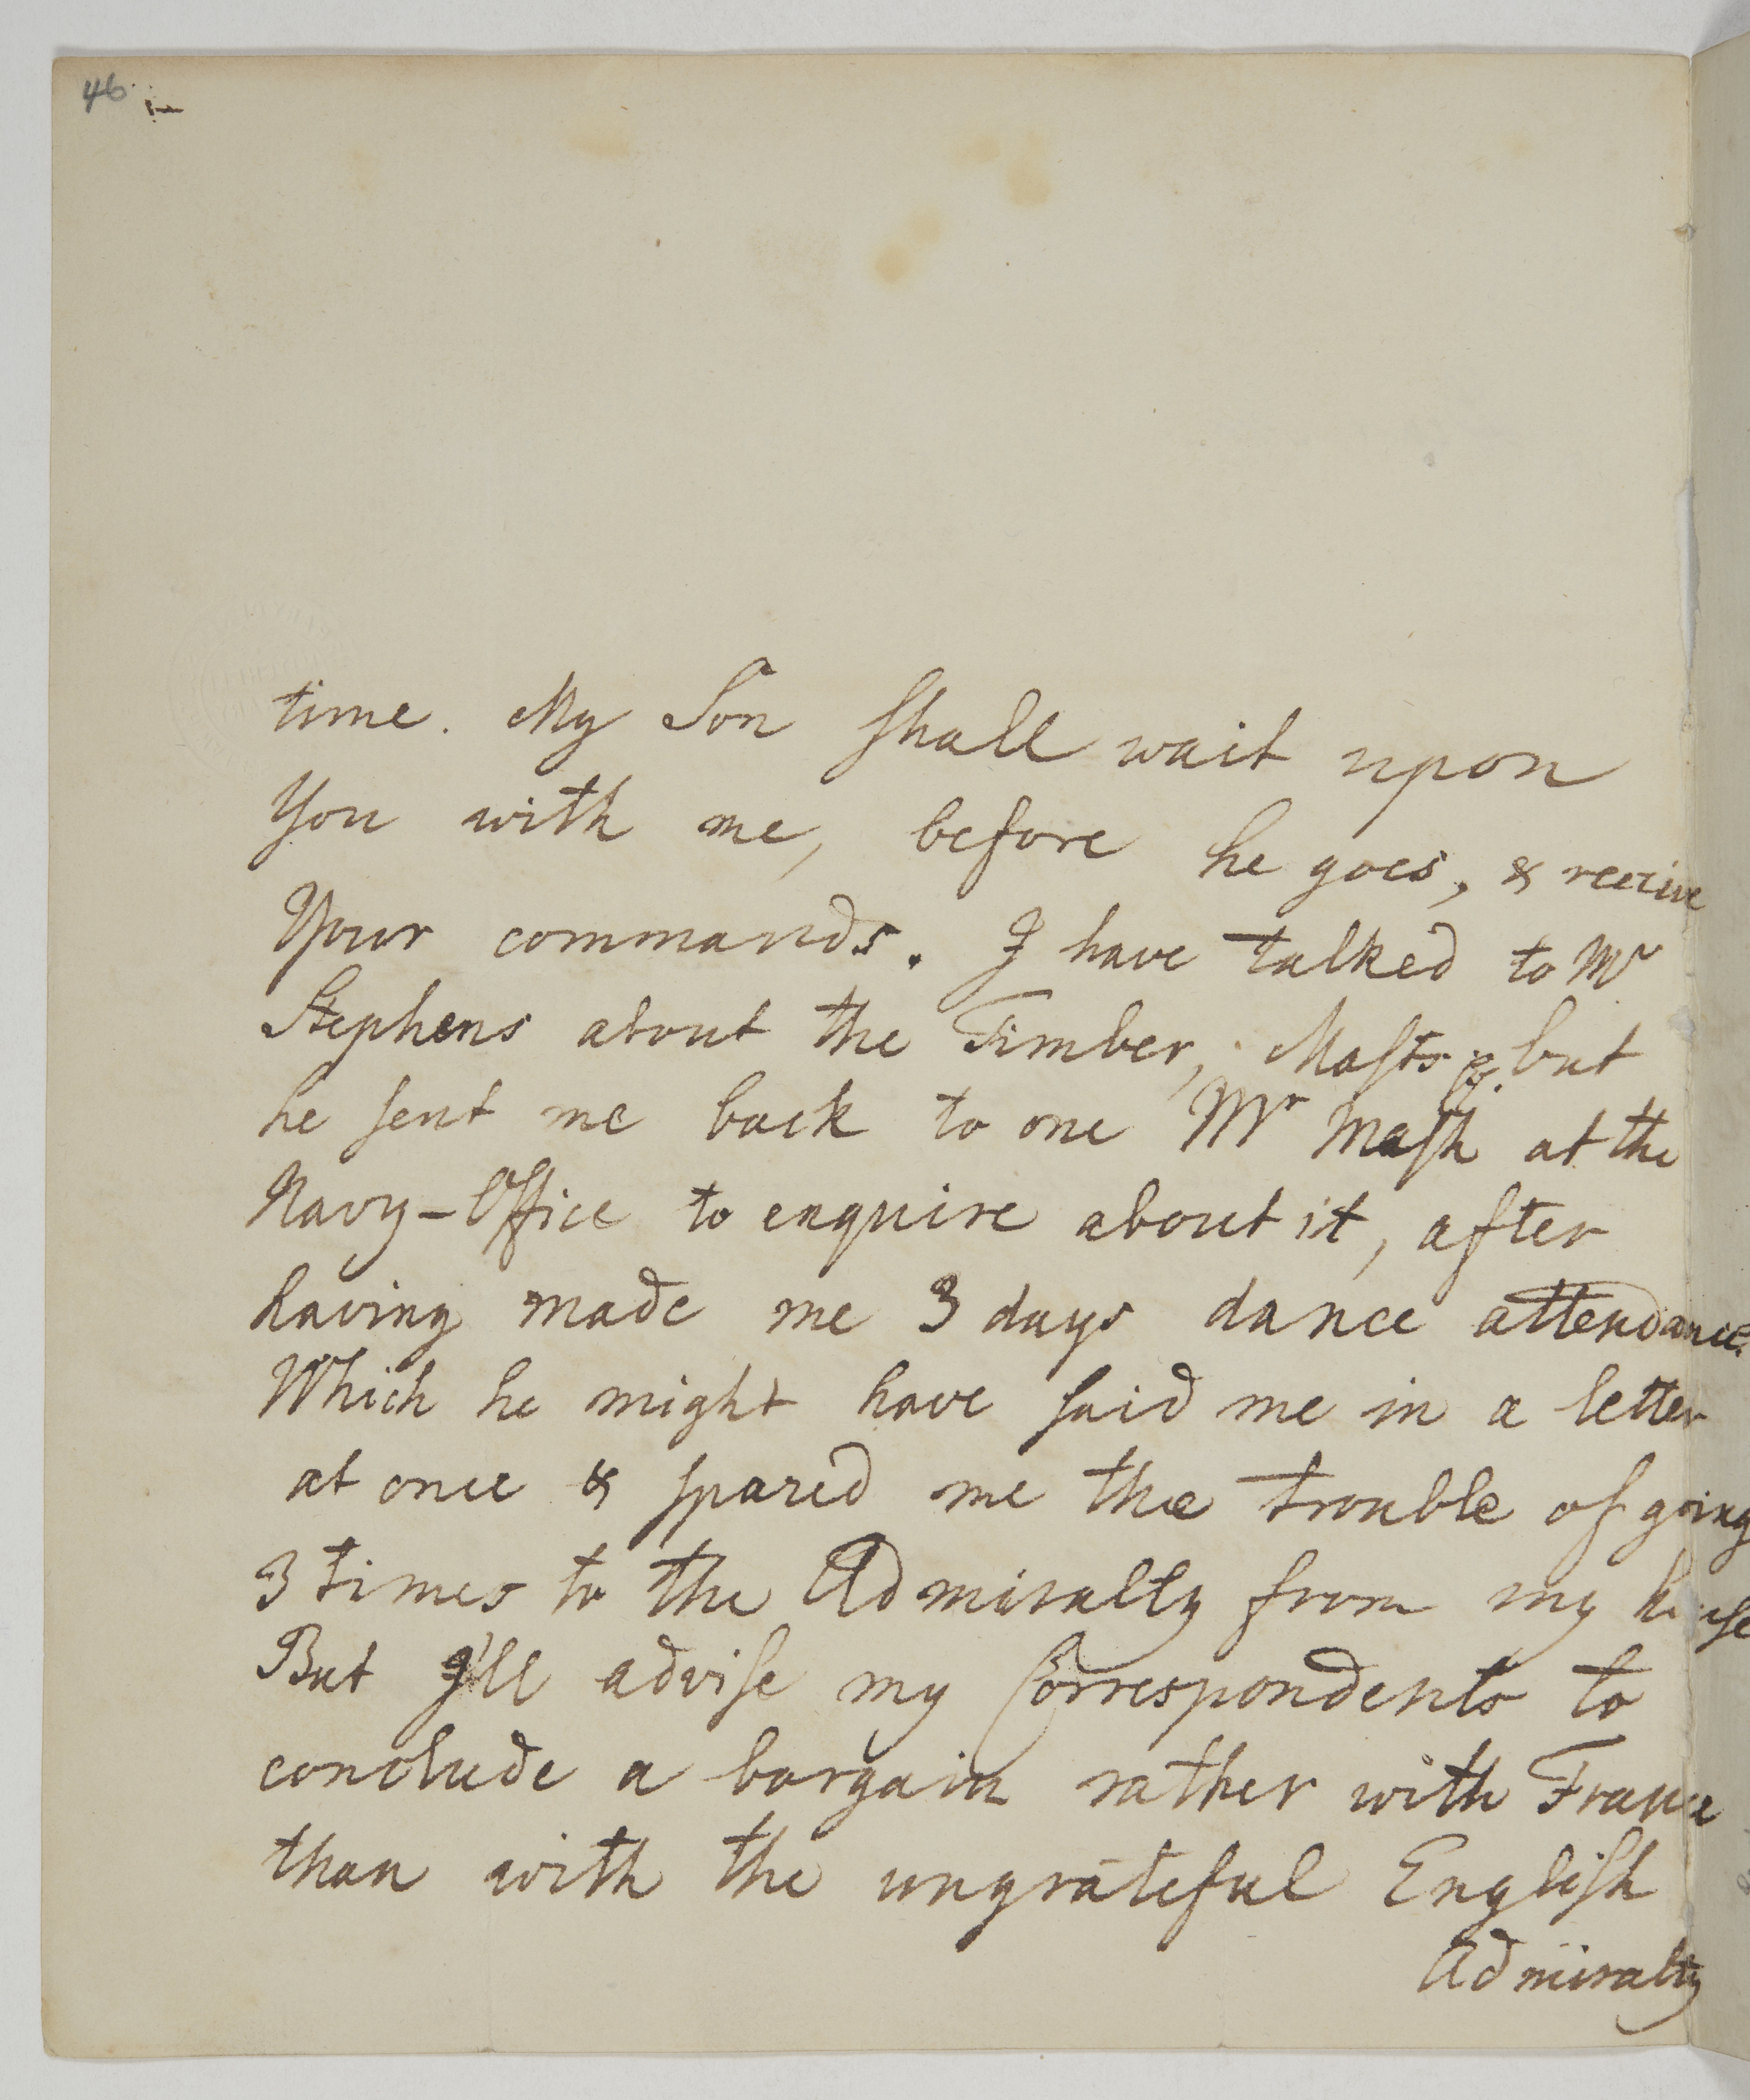 46
time. My Son ſhall wait upon
You with me, before he goes, & receive
Your commands. I have talked to Mr
Stephens about the Timber, Maſts &c. but
he ſent me back to one Mr Maſh at the
Navy-Office to enquire about it, after
having made me 3 days dance attendance.
Which he might have ſaid me in a letter
at once & ſpared me the trouble of going
3 times to the Admiralty from my houſe
But I'll adviſe my Correspondents to
conclude a bargain rather with France
than with the ungrateful Engliſh
Admiralty